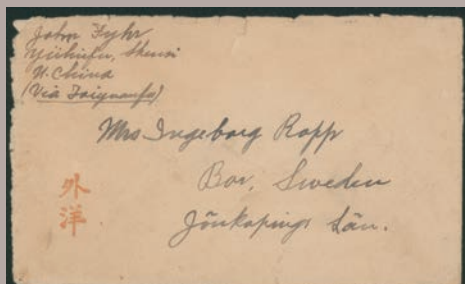 John Fyhr
Yülinfu, Shensi
N. China
(Via Taiyuanfu)
Mrs Ingeborg Ropp
Bor, Sweden
Jönkopings Län.
外
洋